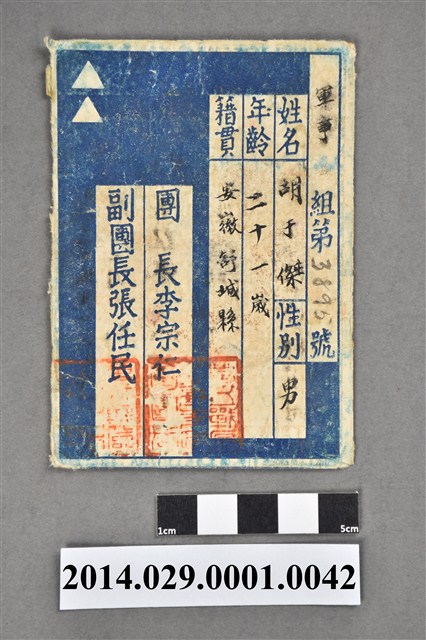 軍事組第3895號
姓名 胡于傑 性別 男
年齡 二十一歲
籍貫 安徽舒城縣
團長李宗仁
副團長張任民
1cm 5cm
2014.029.0001.0042